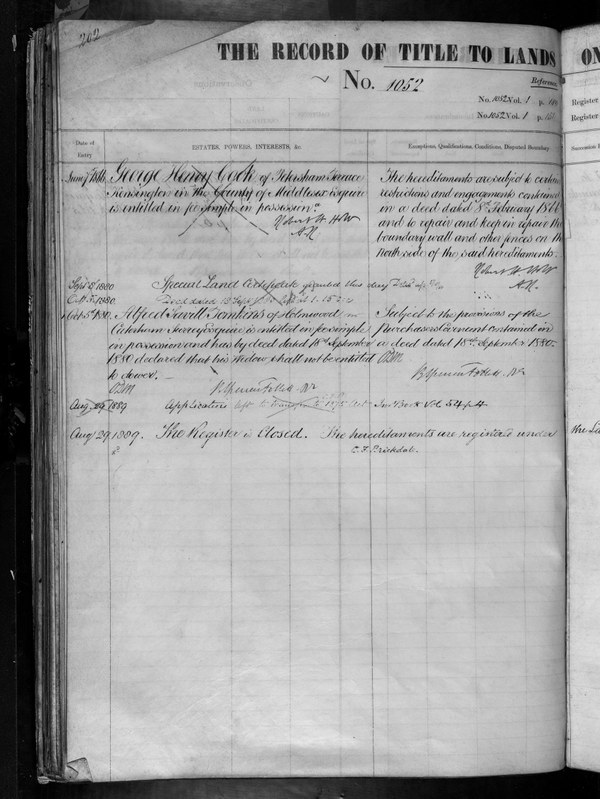 202
THE RECORD OF TITLE TO LANDS
No. 1052
Reference
No. 1052 Vol. 1 p.
No. 1052 Vol. 1 p.
Date of Entry
ESTATES, POWERS, INTERESTS, &c.
Exceptions, Qualifications, Conditions, Disputed Boundary
George Henry Cook of Petersham Terrace
Kensington in the County of Middlesex esquire
is entitled in fee simple in possession.
The hereditaments are subject to certain
restrictions and engagements contained
in a deed dated February
and to repair and keep in repair the
boundary wall and other fences on the
North side of the said hereditaments.
Sept 1880
Special Land Certificate granted this day
Oct 5. 1880.
Oct 5th 1880. Alfred Savill Tomkins of Holmwood
Caterham Surrey esquire is entitled in fee simple
in possession and has by deed dated 18th September
1880 declared that his widow shall not be entitled
to dower.
Subject to the provisions of the
Purchasers Covenant contained in
a deed dated 18th September 1880.
Aug 29 1889
Application
Vol 54 p 4
Aug 29. 1889. The Register is Closed. The hereditaments are registered under
the
C. F. Brickdale.
ON
Register
Register